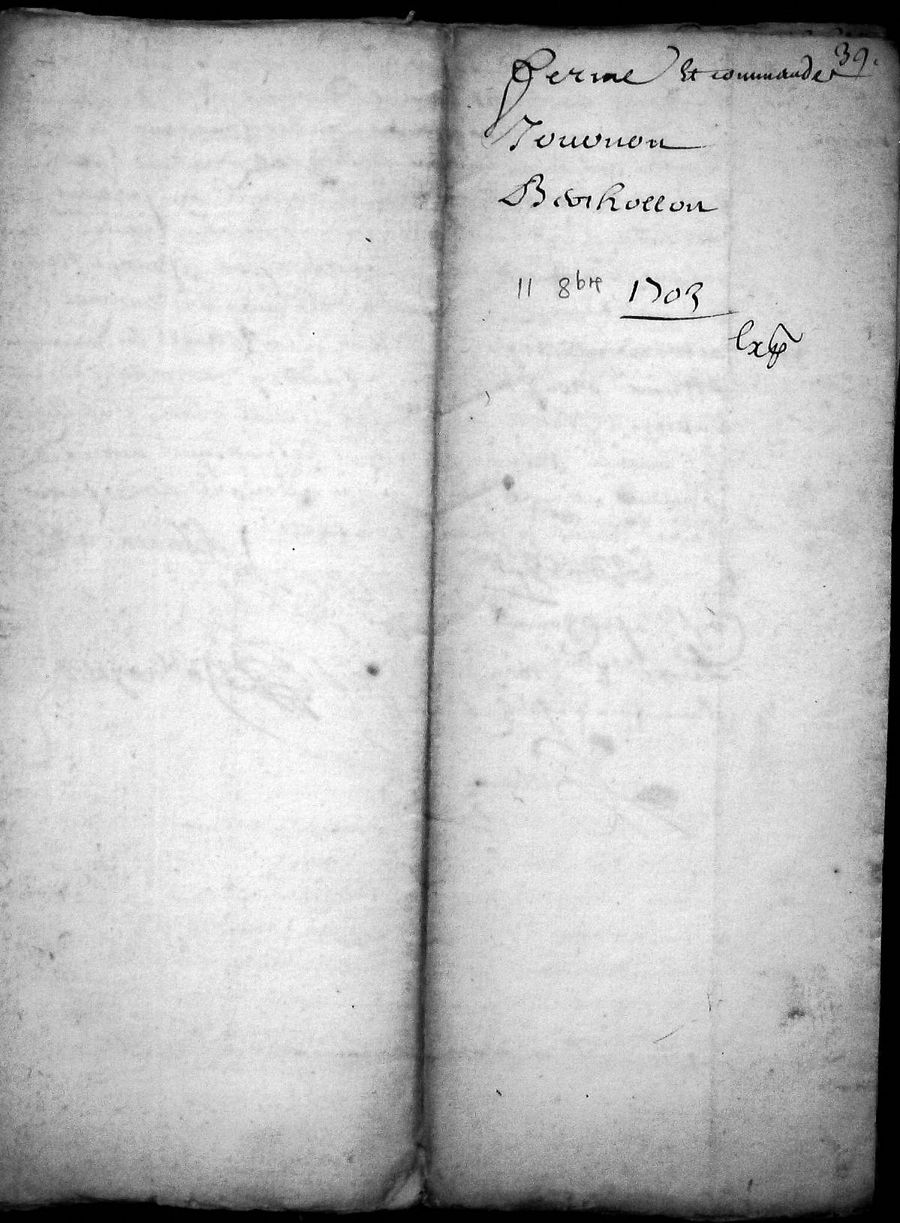 39.
Ferme Et commande
Jouonon
Berthollon
11 8bre 1703